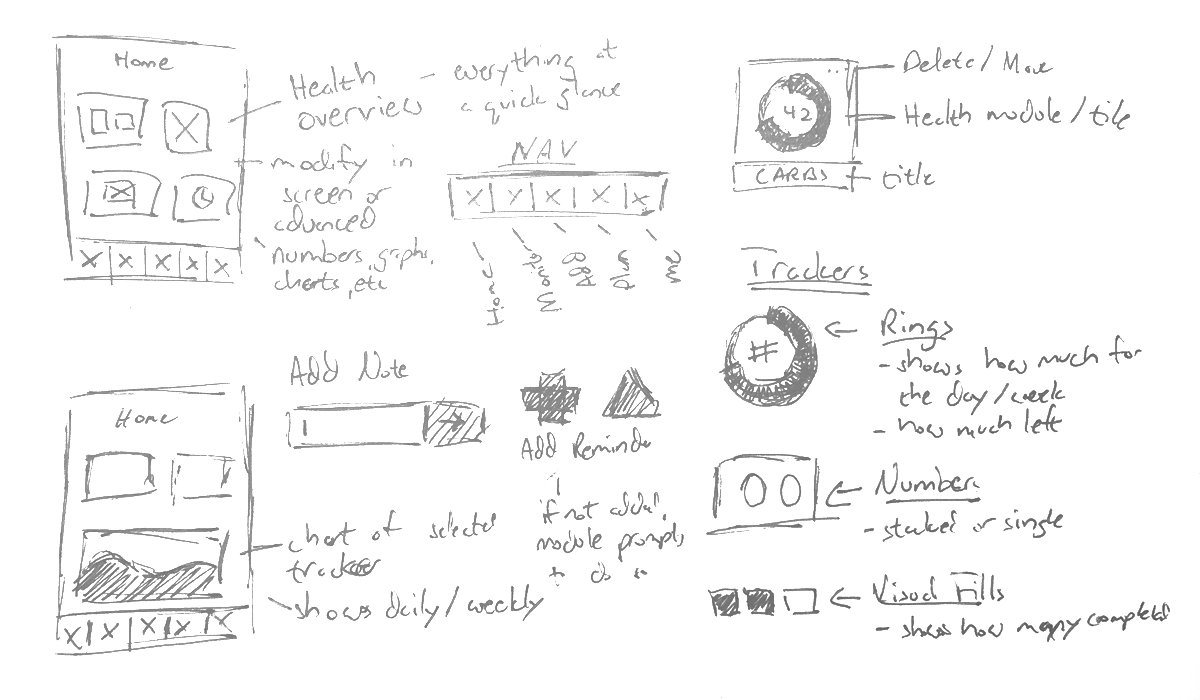 Home
Health
overview
- everything at
a quick glance
modify in
screen or
advanced
numbers, graphs,
charts, etc
X X X X X
NAV
X Y X X X
Home
Add
me
42
CARBS
Delete / Move
Health module / tile
title
Trackers
#
Rings
- shows how much for
the day/week
- how much left
00
Number
- stacked or single
Visual Fills
- shows how many completed
Home
X X X X X
Add Note
Add Reminder
if not added,
module prompts
to do so
chart of selected
tracker
shows daily/weekly